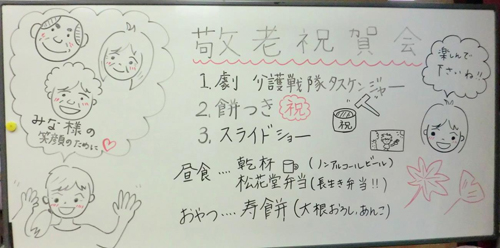 敬老祝賀会
1. 劇 介護戦隊タスケンジャー
2. 餅つき 祝
祝
3. スライドショー
昼食‥‥乾杯 (ノンアルコールビール)
松花堂弁当 (長生き弁当!!)
おやつ‥‥寿餅 (大根おろし、あんこ)
みな様の
笑顔のために
楽しんで
下さいね!!